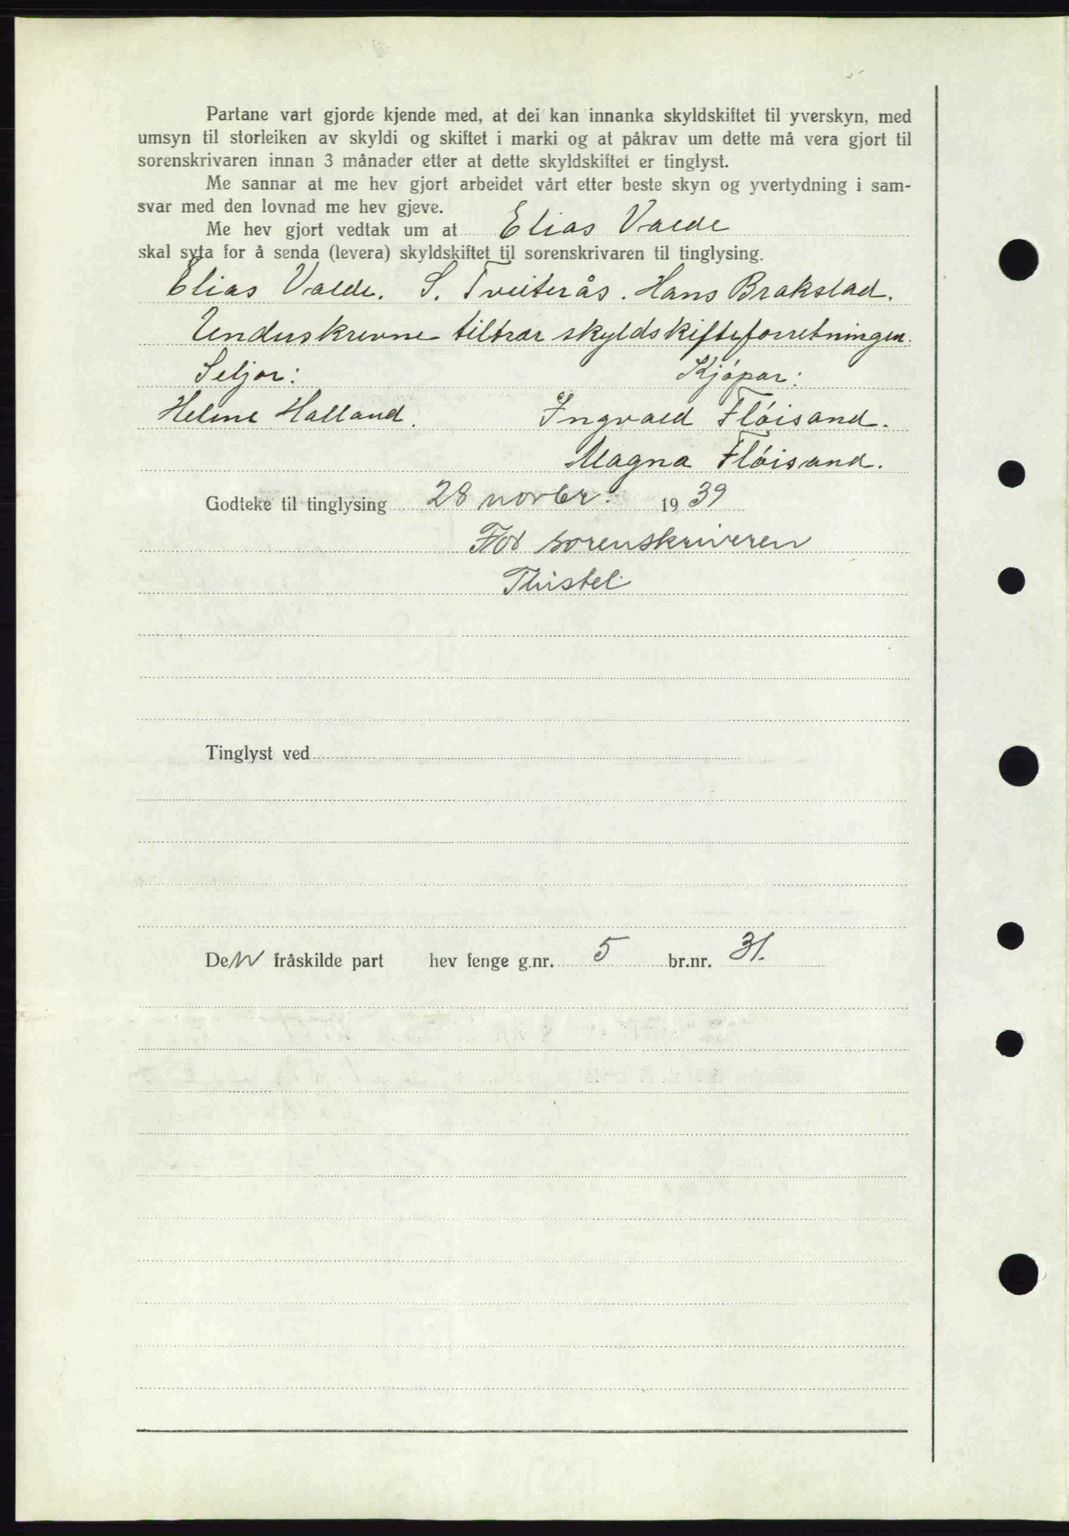 Partane vart gjorde kjende med, at dei kan innanka skyldskiftet til yverskyn, med
umsyn til storleiken av skyldi og skiftet i marki og at påkrav um dette må vera gjort til
sorenskrivaren innan 3 månader etter at dette skyldskiftet er tinglyst.
Me sannar at me hev gjort arbeidet vårt etter beste skyn og yvertydning i sam-
svar med den lovnad me hev gjeve.
Me hev gjort vedtak um at Elias Valde
skal syta for å senda (levera) skyldskiftet til sorenskrivaren til tinglysing.
Elias Valde. S. Tveiterås. Hans Brakstad.
Underskrevne tiltrær skyldskifteforretningen.
Seljar: Kjøpar:
Helene Halland. Ingvald Fløisand.
Magna Fløisand.
Godteke til tinglysing 28 novbr. 1939
For sorenskriveren
Thistel
Tinglyst ved
Den fråskilde part hev fenge g.nr. 5 br.nr. 31.